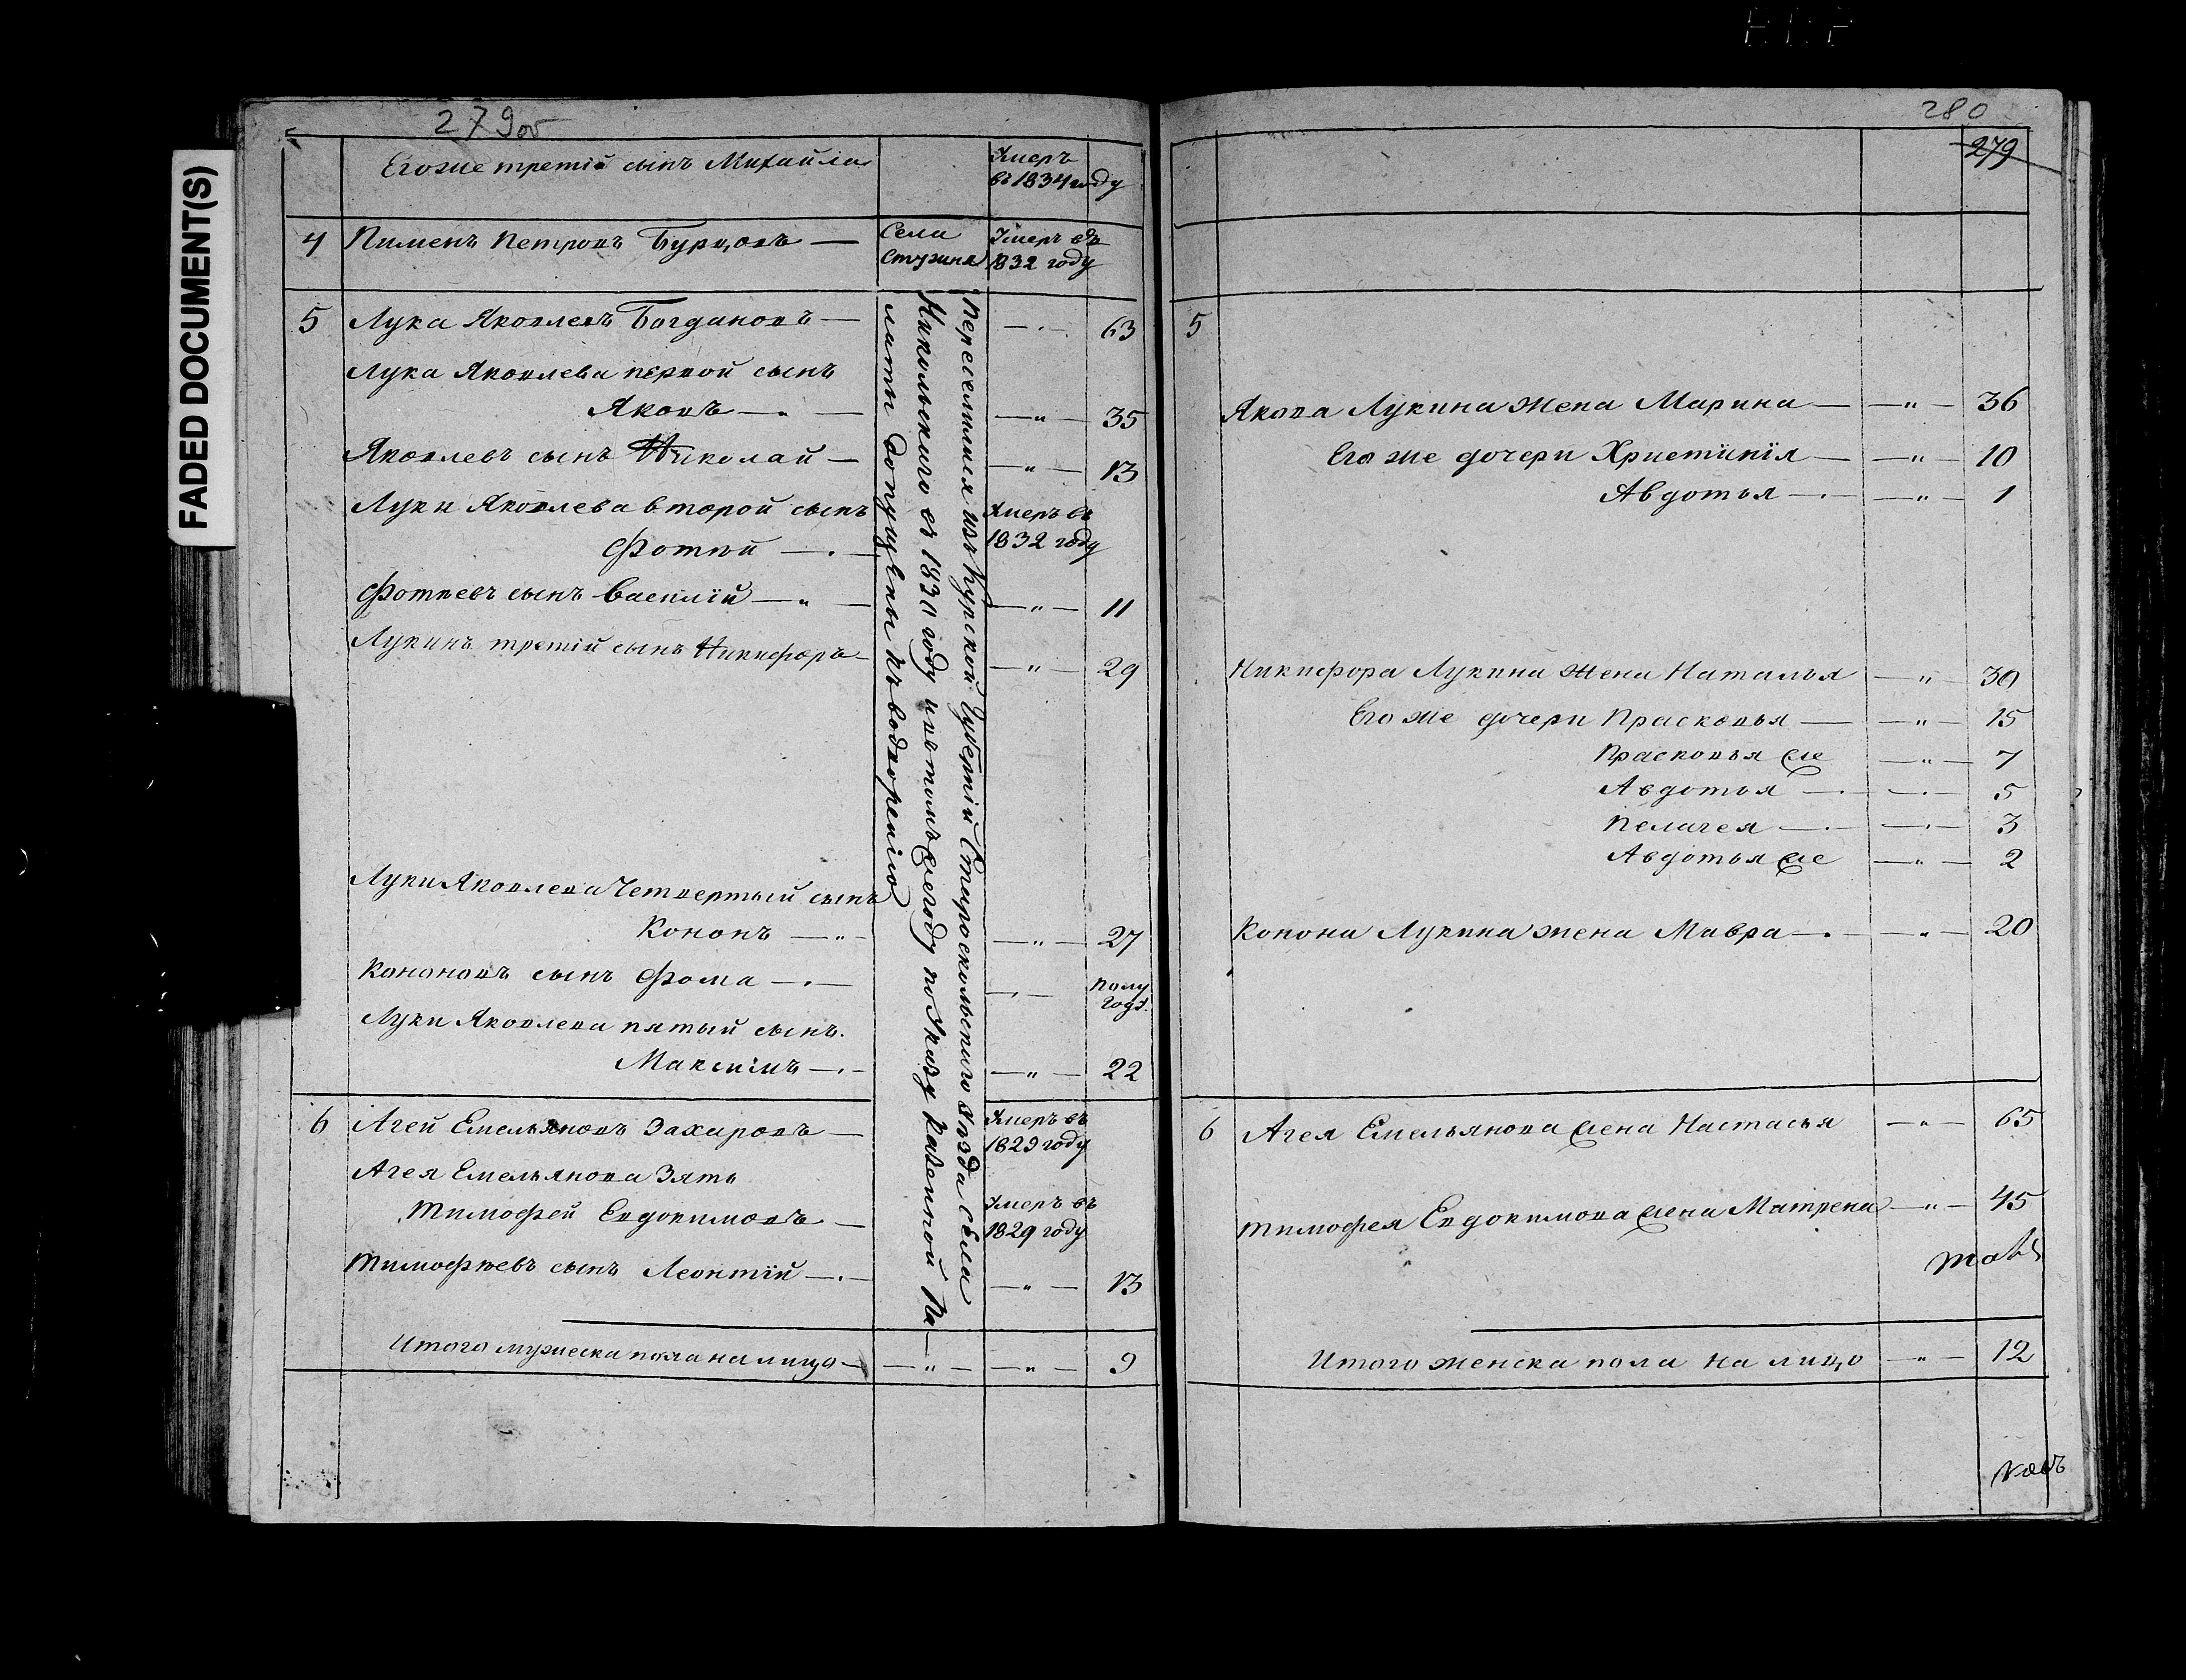 FADED DOCUMENT(S)
279 об
Его же третій сынъ Михайла
Умеръ
въ 1834 году
4 Пименъ Петровъ Бурцовъ —
Села
Стужня
Умеръ въ
1832 году
5 Лука Яковлевъ Богдановъ — 63
Лука Яковлева первой сынъ
Яковъ — 35
Яковлевъ сынъ Николай — 13
Луки Яковлева второй сынъ
Фотѣй —
Умеръ въ
1832 году
Фотѣевъ сынъ Василій — 11
Лукинъ третій сынъ Никифоръ — 29
Луки Яковлева Четвертый сынъ
Кононъ — 27
Кононовъ сынъ Фома —
полу
года
Луки Яковлева пятый сынъ
Максимъ — 22
Переселился изъ Курской Губерніи Старооскольскаго Уѣзда села
Никольскаго въ 1830 году и въ томъ же году по Указу Казенной Па
латы допущены къ водворенію
6 Агей Емельяновъ Захаровъ —
Умеръ въ
1829 году
Агея Емельянова Зять
Тимофей Евдокимовъ —
Умеръ въ
1829 году
Тимофѣевъ сынъ Леонтій — 13
Итого мужеска пола на лицо — 9
280
279
5
Якова Лукина жена Марина — 36
Его же дочери Христинія — 10
Авдотья — 1
Никифора Лукина жена Наталья 30
Его же дочери Прасковья — 15
Прасковья же 7
Авдотья — 5
Пелагея — 3
Авдотья же 2
Конона Лукина жена Мавра — 20
6 Агея Емельянова жена Настасья 65
Тимофея Евдокимова жена Матрена 45
Итого женска пола на лицо 12